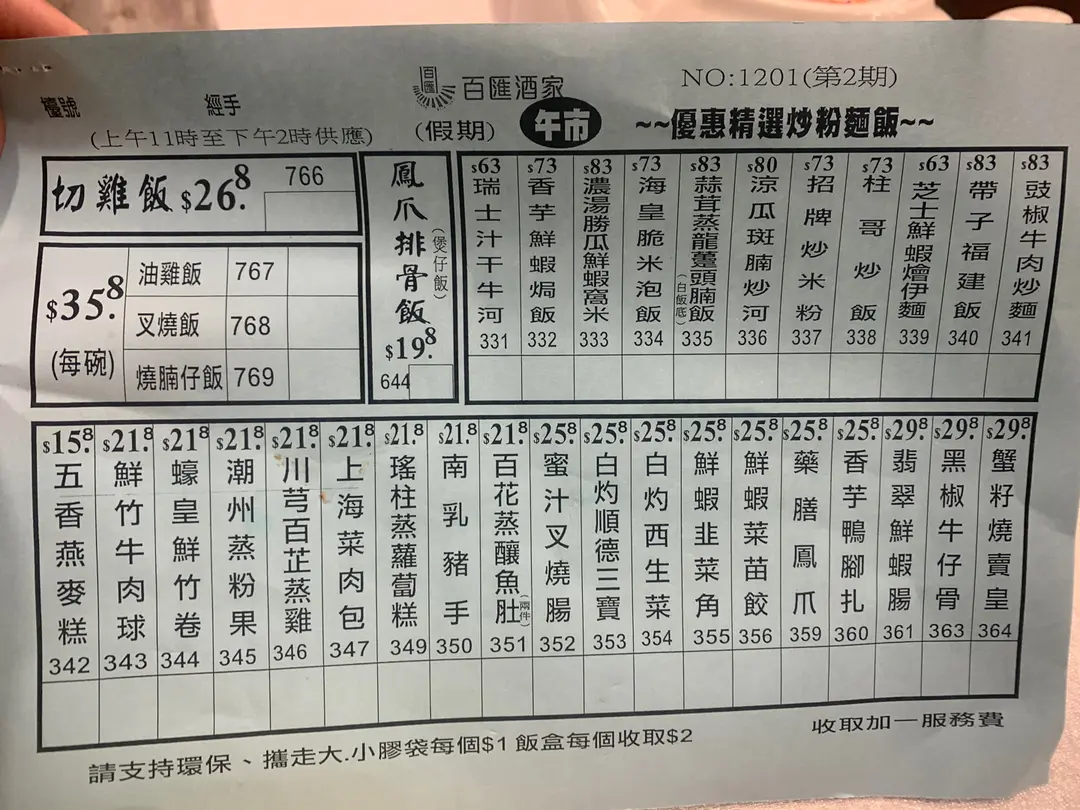 檯號
經手
百匯
百匯酒家
NO:1201(第2期)
(上午11時至下午2時供應)
(假期)
午市
~~優惠精選炒粉麵飯~~
切雞飯 $26.8 766
$35.8 (每碗)
油雞飯 767
叉燒飯 768
燒腩仔飯 769
鳳爪排骨飯 (煲仔飯) $19.8 644
$63 瑞士汁干牛河 331
$73 香芋鮮蝦焗飯 332
$83 濃湯勝瓜鮮蝦窩米 333
$73 海皇脆米泡飯 334
$83 蒜茸蒸龍躉頭腩飯 (白飯底) 335
$80 涼瓜斑腩炒河 336
$73 招牌炒米粉 337
$73 柱哥炒飯 338
$63 芝士鮮蝦燴伊麵 339
$83 帶子福建飯 340
$83 豉椒牛肉炒麵 341
$15.8 五香燕麥糕 342
$21.8 鮮竹牛肉球 343
$21.8 蠔皇鮮竹卷 344
$21.8 潮州蒸粉果 345
$21.8 川芎百芷蒸雞 346
$21.8 上海菜肉包 347
$21.8 瑤柱蒸蘿蔔糕 349
$21.8 南乳豬手 350
$21.8 百花蒸釀魚肚 (兩件) 351
$25.8 蜜汁叉燒腸 352
$25.8 白灼順德三寶 353
$25.8 白灼西生菜 354
$25.8 鮮蝦韭菜角 355
$25.8 鮮蝦菜苗餃 356
$25.8 藥膳鳳爪 359
$25.8 香芋鴨腳扎 360
$29.8 翡翠鮮蝦腸 361
$29.8 黑椒牛仔骨 363
$29.8 蟹籽燒賣皇 364
請支持環保、攜走大.小膠袋每個$1 飯盒每個收取$2
收取加一服務費